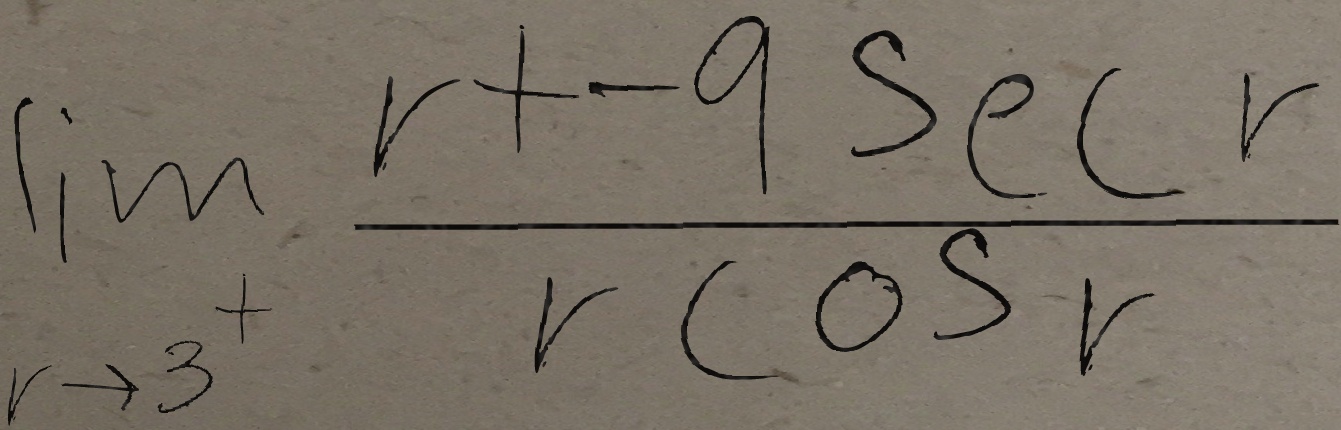 \lim_{r \to 3^+} \frac{r + -9 \sec r}{r \cos r}